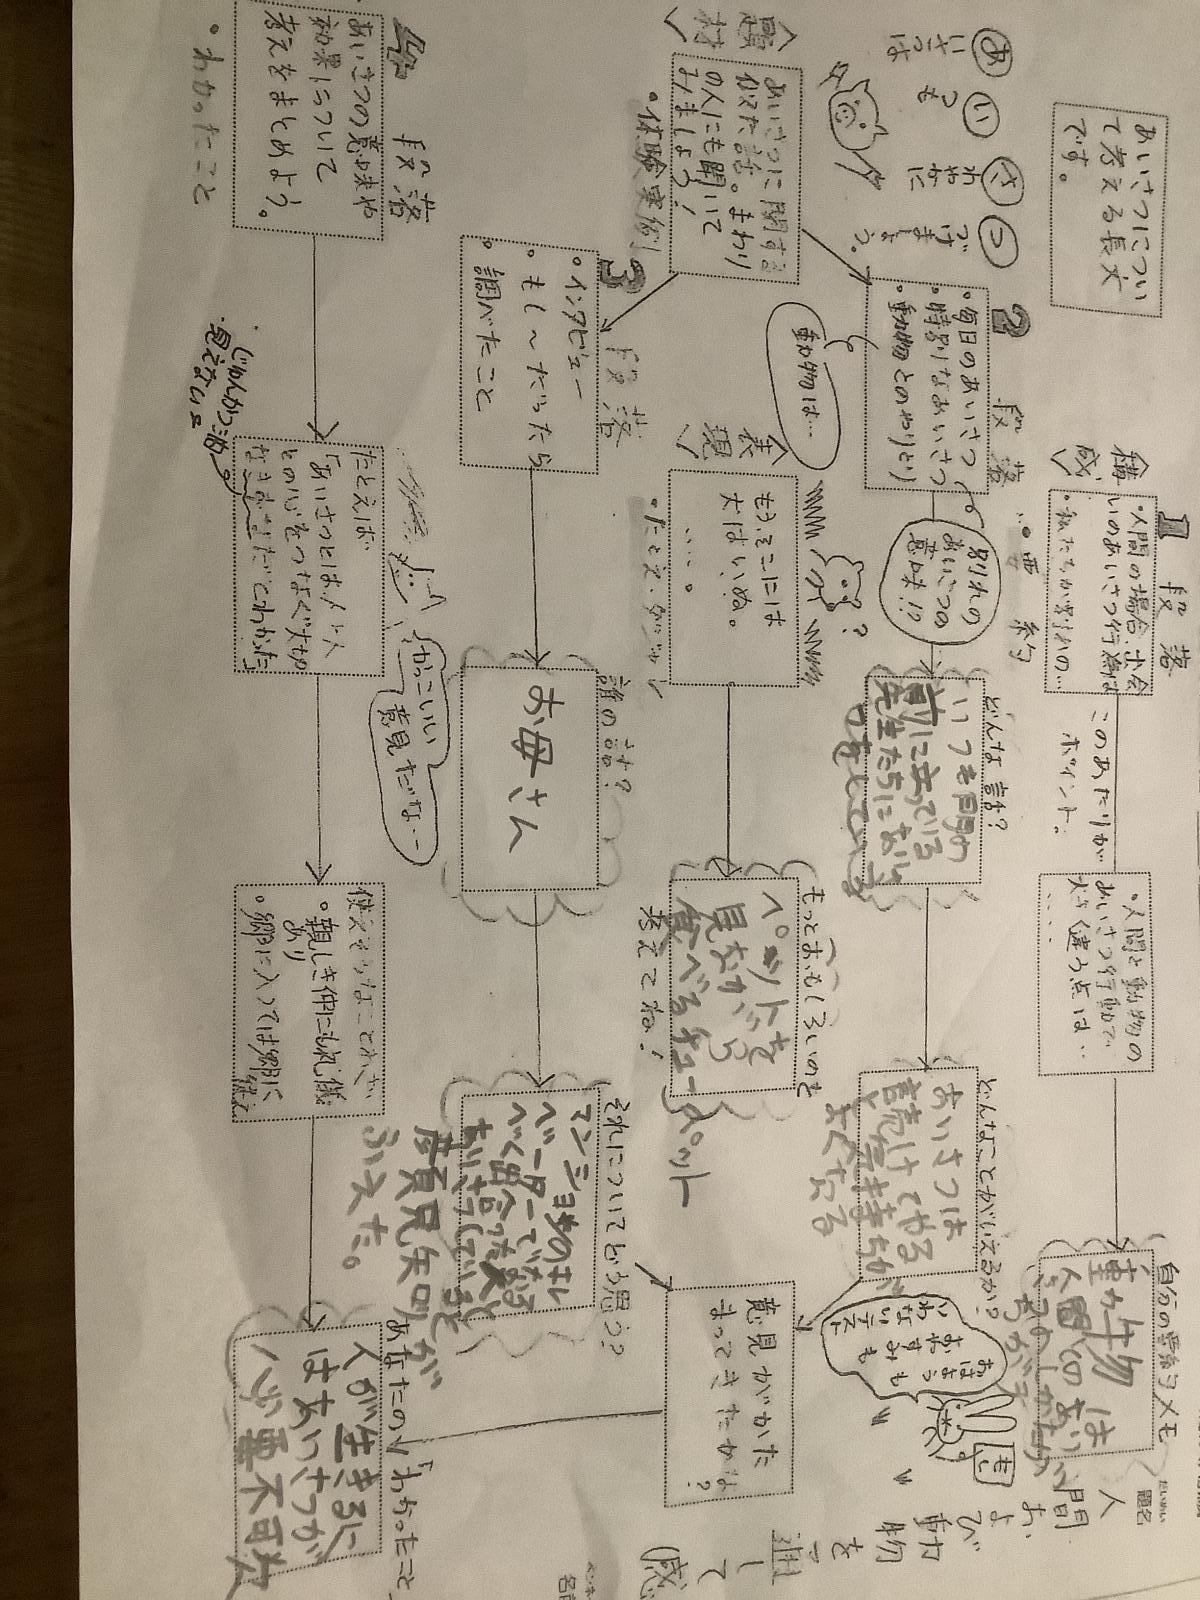 あいさつについ
て考える長文
です。
あいさつは
いつも
さわやかに
つづけましょう。
〈題材〉
あいさつに関する
似た話。まわり
の人にも聞いて
みましょう!
・体験実例
〈構成〉
1段落
・人間の場合、出会
いのあいさつ行動は
・私たちが別れの…
・要約
このあたりが
ポイント。
・人間と動物の
あいさつ行動で
大きく違う点は…
自分の要約メモ
動物は
人間と
2段落
・毎日のあいさつ
・特別なあいさつ
・動物とのやりとり
動物は…
別れの
あいさつの
意味!?
どんな話?
いつも門の
前に立っている
先生たちにあいさ
つをしている
どんなことがいえるか?
あいさつは
続けてやる
と気持ちが
よくなる
おはようも
おすみも
いわないテスト
〈表現〉
もうそこには
犬はいぬ。
…。
・たとえ・ダジャレ
?
もっとおもしろいのを
考えてね!
ペットを
見ながら
食べるキュー
ペット
3段落
・インタビュー
・もし〜だったら
・調べたこと
誰の話?
お母さん
それについてどう思う?
マンションのエレ
ベーターでなる
べく出会った人と
あいさつしている
彦頁見矢口が
ふえた。
意見がかた
まってきたかな?
4段落
あいさつの意味や
効果について
考えをまとめよう。
・わかったこと
たとえば
「あいさつとは人と人
との心をつなぐ大切
なきずなだとわかった」
じゅんかつ油
見えない
かっこいい
意見だな…
使えそうなことわざ
・親しき仲にも礼儀
あり
・郷に入っては郷に
従え
あなたの「わかったこと」
人が生きるに
はあいさつが
必要不可欠
題名
人間および動物を通して